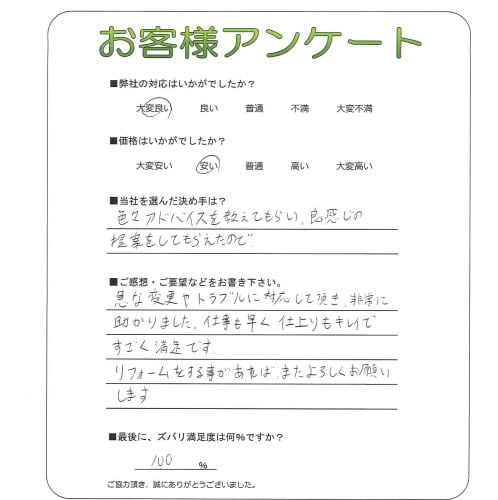 お客様アンケート
■弊社の対応はいかがでしたか？
大変良い 良い 普通 不満 大変不満
■価格はいかがでしたか？
大変安い 安い 普通 高い 大変高い
■当社を選んだ決め手は？
色々アドバイスを教えてもらい、良い感じの
提案をしてもらえたので。
■ご感想・ご要望などをお書き下さい。
急な変更やトラブルに対応して頂き、非常に
助かりました。仕事も早く仕上りもキレイで
すごく満足です。
リフォームをする事があれば、またよろしくお願い
します
■最後に、ズバリ満足度は何％ですか？
100 ％
ご協力頂き、誠にありがとうございました。